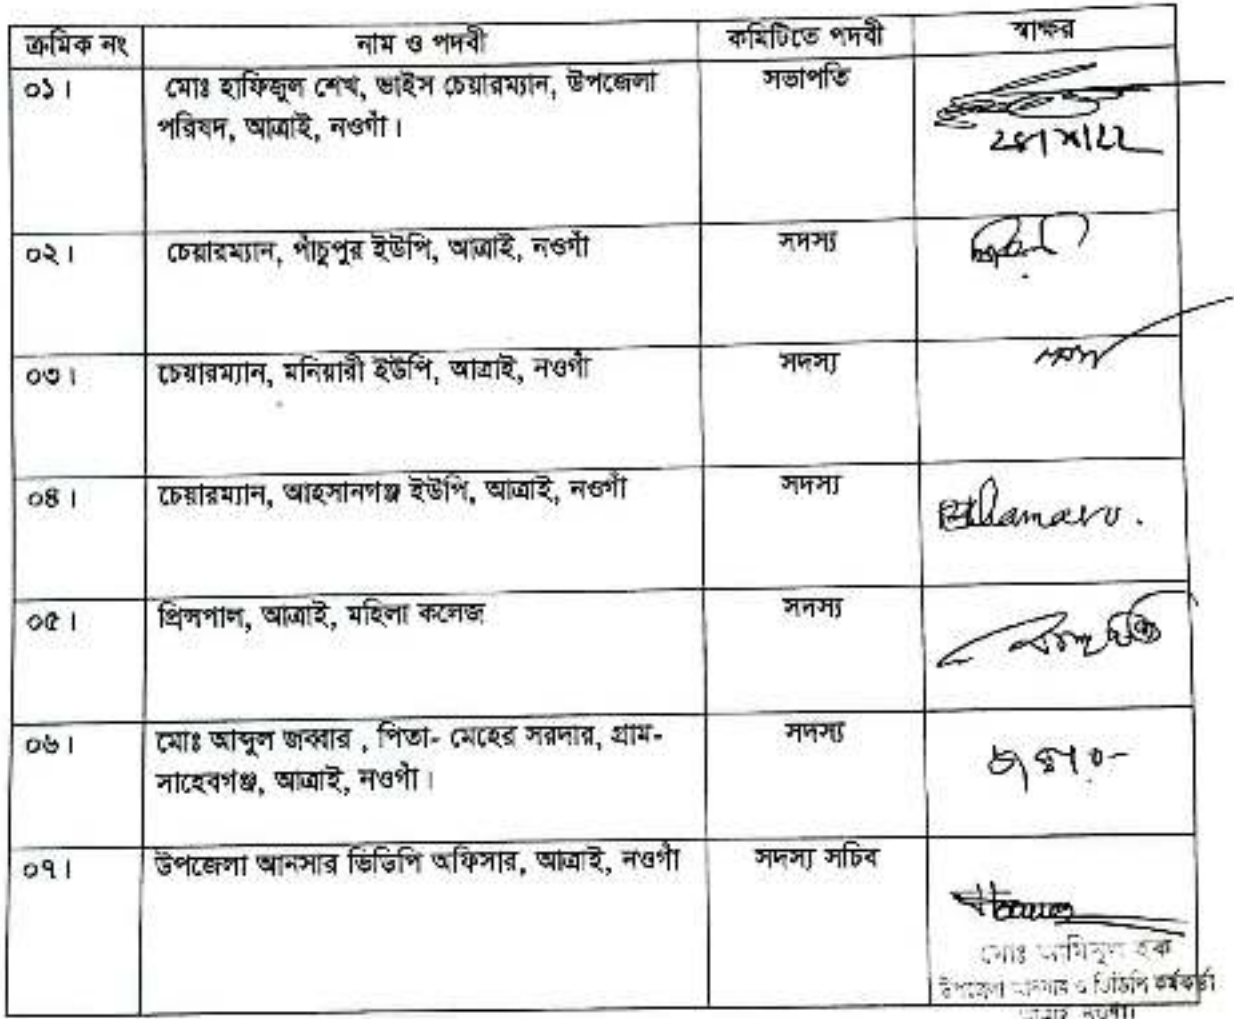 ক্রমিক নং নাম ও পদবী কমিটিতে পদবী স্বাক্ষর
০১। মোঃ হাফিজুল শেখ, ভাইস চেয়ারম্যান, উপজেলা সভাপতি
পরিষদ, আত্রাই, নওগাঁ।
০২। চেয়ারম্যান, পাঁচুপুর ইউপি, আত্রাই, নওগাঁ সদস্য
০৩। চেয়ারম্যান, মনিয়ারী ইউপি, আত্রাই, নওগাঁ সদস্য
০৪। চেয়ারম্যান, আহসানগঞ্জ ইউপি, আত্রাই, নওগাঁ সদস্য
০৫। প্রিন্সপাল, আত্রাই, মহিলা কলেজ সদস্য
০৬। মোঃ আব্দুল জব্বার , পিতা- মেহের সরদার, গ্রাম- সদস্য
সাহেবগঞ্জ, আত্রাই, নওগাঁ।
০৭। উপজেলা আনসার ভিডিপি অফিসার, আত্রাই, নওগাঁ সদস্য সচিব
মোঃ আমিনুল হক
উপজেলা আনসার ও ভিডিপি কর্মকর্তা
আত্রাই, নওগাঁ।